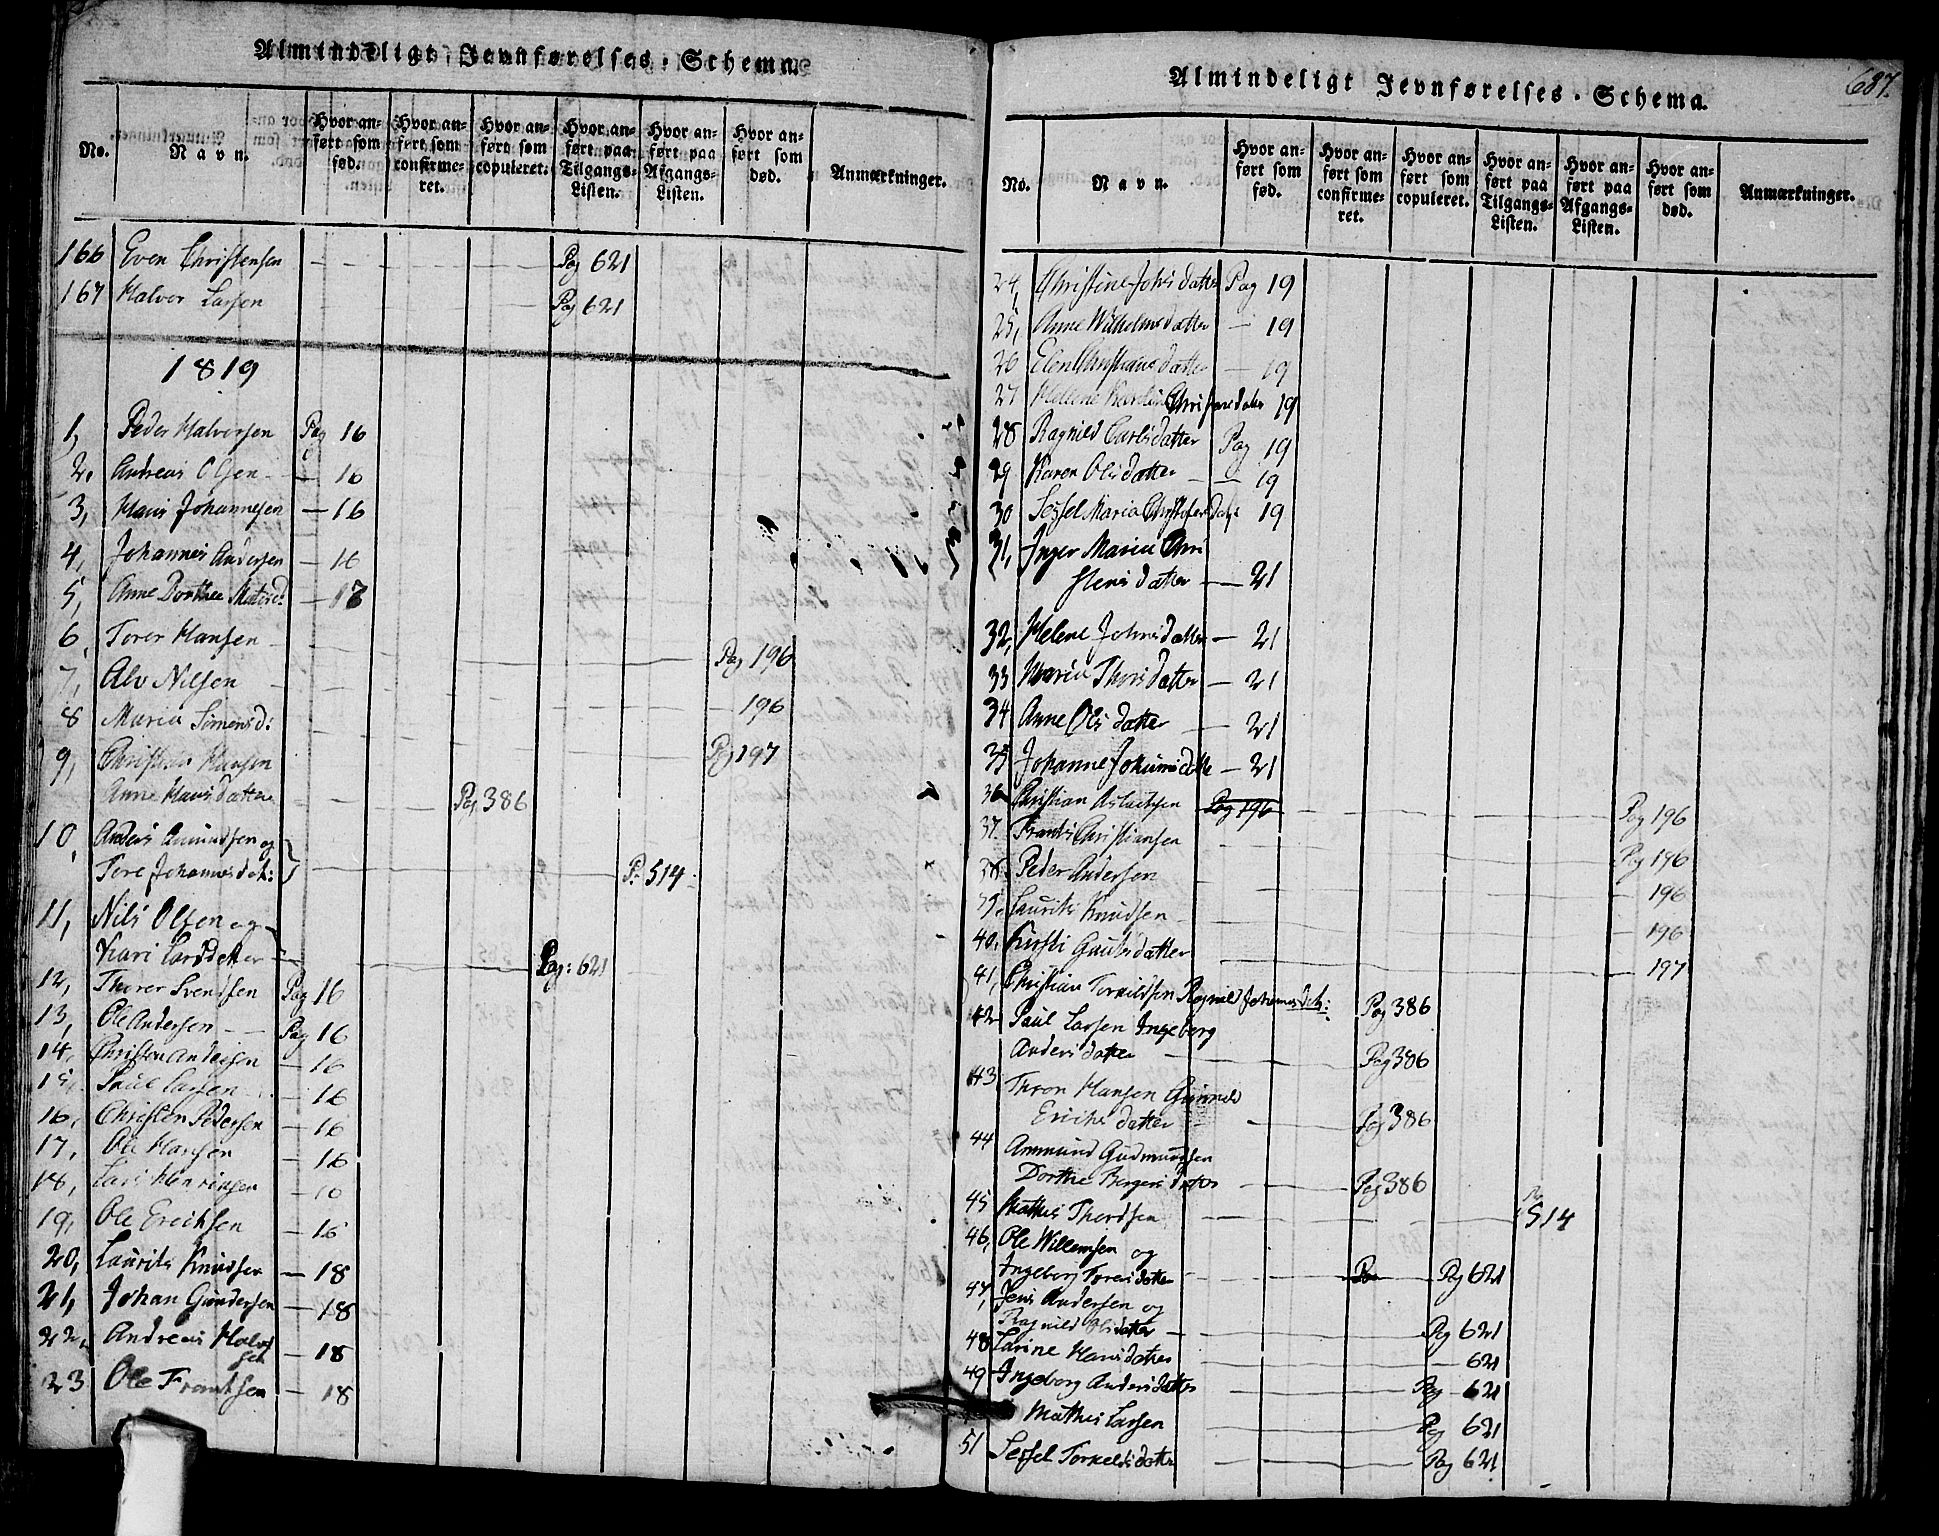 Almindeligt Jevnførelses-Schema.
No. Navn. Hvor anført som fød. Hvor anført som confirmeret. Hvor anført som copuleret. Hvor anført paa Tilgangs-Listen. Hvor anført paa Afgangs-Listen. Hvor anført som død. Anmærkninger.
166 Even Christensen Pag 621
167 Halvor Larsen Pag 621
1819
1, Peder Halvorsen Pag 16
2. Andreas Olsen — 16
3, Hans Johannesen — 16
4, Johannes Andersen — 16
5, Anne Dorthee
6, Torer Hansen Pag 196
7, Alv Nilsen 196
8 Maria Simensd: Pag 197
9, Christian Hansen
Anne Hansdatter Pag 386
10, Anders Amundsen og
Tore Johannesdat: P. 514
11, Nils Olsen og
Kari Larsdatter Pag: 621
12, Thorer Svendsen Pag 16
13, Ole Andersen Pag 16
14, Christen Andersen — 16
15, Paul Larsen — 16
16, Christen Pedersen — 16
17, Ole Hansen — 16
18, Lars Henriksen — 16
19, Ole Erichsen — 16
20, Laurits Knudsen — 18
21, Johan Gundersen — 18
22, Andreas Halvor
sen — 18
23 Ole Frantsen — 18
687.
Almindeligt Jevnførelses-Schema.
No. Navn. Hvor anført som fød. Hvor anført som confirmeret. Hvor anført som copuleret. Hvor anført paa Tilgangs-Listen. Hvor anført paa Afgangs-Listen. Hvor anført som død. Anmærkninger.
24, Christine Johsdatter Pag 19
25, Anne Wilhelmsdatter — 19
26 Elen Christiansdatter — 19
27 Helene 19
28 Ragnild Carlsdatter Pag 19
29 Karen Olsdatter — 19
30 Sessel Maria 19
31, Inger Maria Chri
stensdatter — 21
32, Helene Johnsdatter — 21
33 Maria Thorsdatter — 21
34 Anne Olsdatter — 21
35 Johanne Jokumsdatter — 21
36 Christian Aslaksen Pag 196 Pag 196
37. Frants Christiansen Pag 196
38 Peder Andersen 196
39, Laurits Knudsen 196
40, Kirsti Gautesdatter 197
41, Christian Torkildsen Ragnild Johannesdatr: Pag 386
42 Paul Larsen Ingeborg
Andersdatter Pag 386
43 Thron Hansen Gunnild
Erichsdatter Pag 386
44 Ammund Gudmundsen
Dorthe Bergersdatter Pag 386
45 Mathis Thordsen P. 514
46, Ole Willemsen og
Ingeborg Toresdatter Pag 621
47, Jens Andersen og
Ragnild Olsdatter Pag 621
48 Larine Hansdatter — 621
49 Ingeborg Andersdatter Pag 621
Mathis Larsen Pag 621
51 Sessel Torkeldsdatter Pag 621